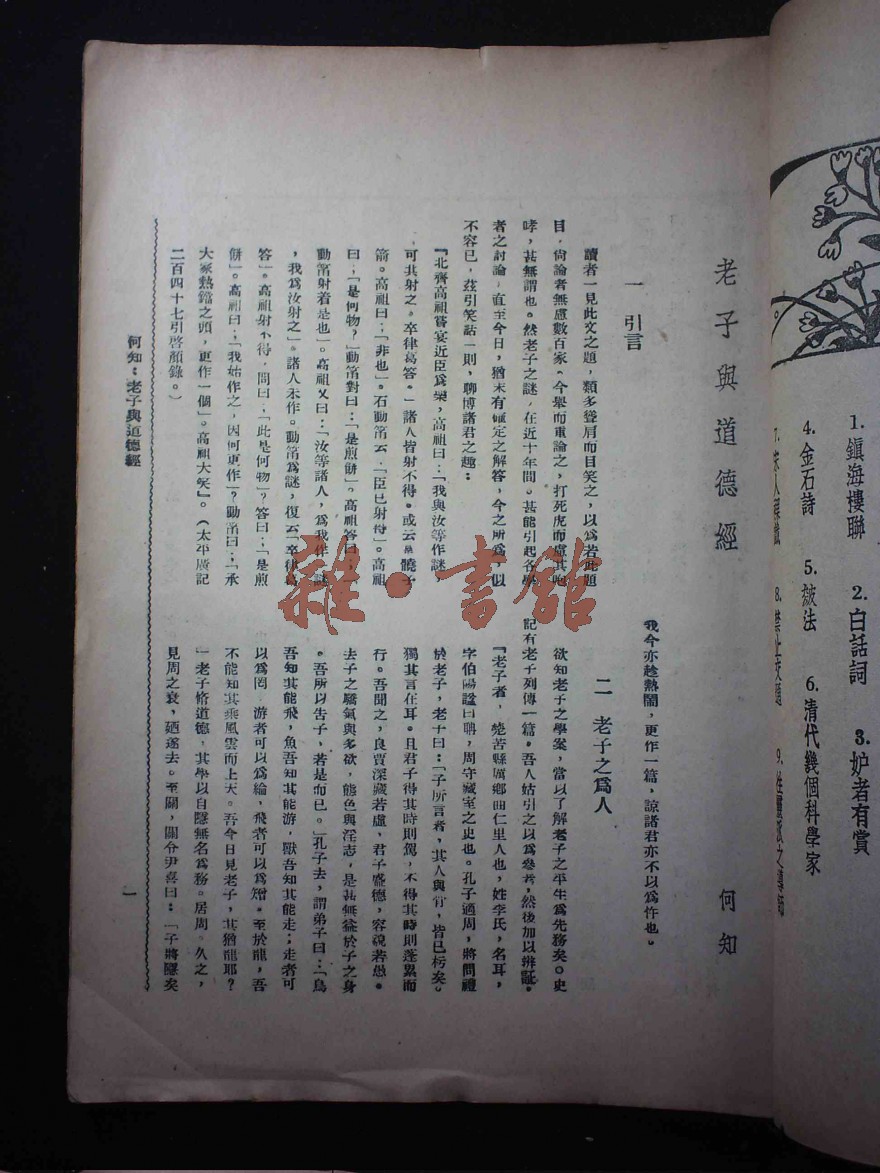 老子與道德經
何知
一 引言
讀者一見此文之題，類多聳肩而目笑之，以爲若此題
目，尙論者無慮數百家。今舉而重論之，打死虎而慮其咆
哮，甚無謂也。然老子之謎，在近十年間。甚能引起各學
者之討論，直至今日，猶未有確定之解答，今之所爲，似
不容已，茲引笑話一則，聊博諸君之趣：
『北齊高祖嘗宴近臣爲樂，高祖曰：「我與汝等作謎
，可其射之。卒律葛答。」諸人皆射不得。或云是髇子
箭。高祖曰：「非也」。石動筩云：「臣已射得」。高祖
曰：「是何物？」動筩對曰：「是煎餅」。高祖答曰：「
動筩射着是也」。高祖又曰：「汝等諸人，爲我作謎
，我爲汝射之」。諸人未作。動筩爲謎，復云「卒律葛
答」。高祖射不得，問曰：「此是何物」？答曰：「是煎
餅」。高祖曰：「我始作之，因何更作」？動筩曰：「承
大家熱鐺之頭，更作一個」。高祖大笑』。（太平廣記
二百四十七引啓顏錄。）
我今亦趁熱鬧，更作一篇，諒諸君亦不以爲忤也。
二 老子之爲人
欲知老子之學案，當以了解老子之平生爲先務矣。史
記有老子列傳一篇。吾人姑引之以爲參考，然後加以辨証。
『老子者，楚苦縣厲鄉曲仁里人也，姓李氏，名耳，
字伯陽諡曰聃，周守藏室之史也。孔子適周，將問禮
於老子，老子曰：「子所言者，其人與骨，皆已朽矣。
獨其言在耳。且君子得其時則駕，不得其時則蓬累而
行。吾聞之，良賈深藏若虛，君子盛德，容貌若愚。
去子之驕氣與多欲，態色與淫志，是甚無益於子之身
。吾所以告子，若是而已。」孔子去，謂弟子曰：「鳥
吾知其能飛，魚吾知其能游，獸吾知其能走；走者可
以爲罔，游者可以爲綸，飛者可以爲矰。至於龍，吾
不能知其乘風雲而上天。吾今日見老子，其猶龍耶？
」老子脩道德，其學以自隱無名爲務。居周。久之，
見周之衰，廼遂去。至關，關令尹喜曰：「子將隱矣
何知：老子與道德經
一
1. 鎭海樓聯
2. 白話詞
3. 妒者有賞
4. 金石詩
5. 皴法
6. 清代幾個科學家
7.
8.
9.
雜·書館